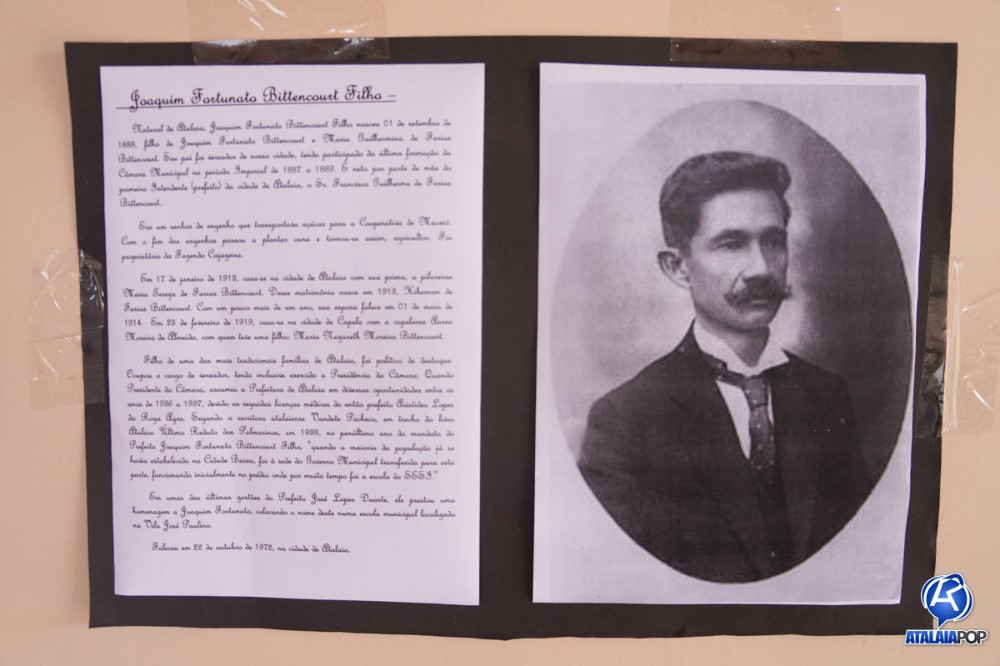 Joaquim Fortunato Bittencourt Filho –
Natural de Atalaia, Joaquim Fortunato Bittencourt Filho nasceu 01 de setembro de
1888, filho de Joaquim Fortunato Bittencourt e Maria Guilhermina de Farias
Bittencourt. Seu pai foi vereador de nossa cidade, tendo participado da última formação da
Câmara Municipal no período Imperial de 1887 a 1889. É neto por parte de mãe do
primeiro Intendente (prefeito) da cidade de Atalaia, o Sr. Francisco Guilherme de Farias
Bittencourt.
Era um senhor de engenho que transportava açúcar para a Cooperativa de Maceió.
Com o fim dos engenhos passou a plantar cana e tornou-se assim, agricultor. Foi
proprietário da Fazenda Cajazeira.
Em 17 de janeiro de 1913, casa-se na cidade de Atalaia com sua prima, a pilarense
Maria Tereza de Farias Bittencourt. Desse matrimônio nasce em 1913, Hibernon de
Farias Bittencourt. Com um pouco mais de um ano, sua esposa falece em 01 de maio de
1914. Em 25 de fevereiro de 1919, casa-se na cidade de Capela com a capelense Aurea
Moreira de Almeida, com quem teve uma filha: Maria Nazareth Moreira Bittencourt.
Filho de uma das mais tradicionais famílias de Atalaia, foi político de destaque.
Ocupou o cargo de vereador, tendo inclusive exercido a Presidência da Câmara. Quando
Presidente da Câmara, assumiu a Prefeitura de Atalaia em diversas oportunidades entre os
anos de 1936 a 1937, devido as seguidas licenças médicas do então prefeito Aristides Lopes
da Roza Agra. Segundo a escritora atalaiense Vandete Pacheco, em trecho do livro
Atalaia Último Reduto dos Palmarinos, em 1938, no penúltimo ano do mandato do
Prefeito Joaquim Fortunato Bittencourt Filho, "quando a maioria da população já se
havia estabelecido na Cidade Baixa, foi à sede do Governo Municipal transferida para esta
parte, funcionando inicialmente no prédio onde por muito tempo foi a escola do SESI."
Em umas das últimas gestões do Prefeito José Lopes Duarte, ele prestou uma
homenagem a Joaquim Fortunato, colocando o nome deste numa escola municipal localizada
na Vila José Paulino.
Faleceu em 22 de outubro de 1972, na cidade de Atalaia.
ATALAIAPOP